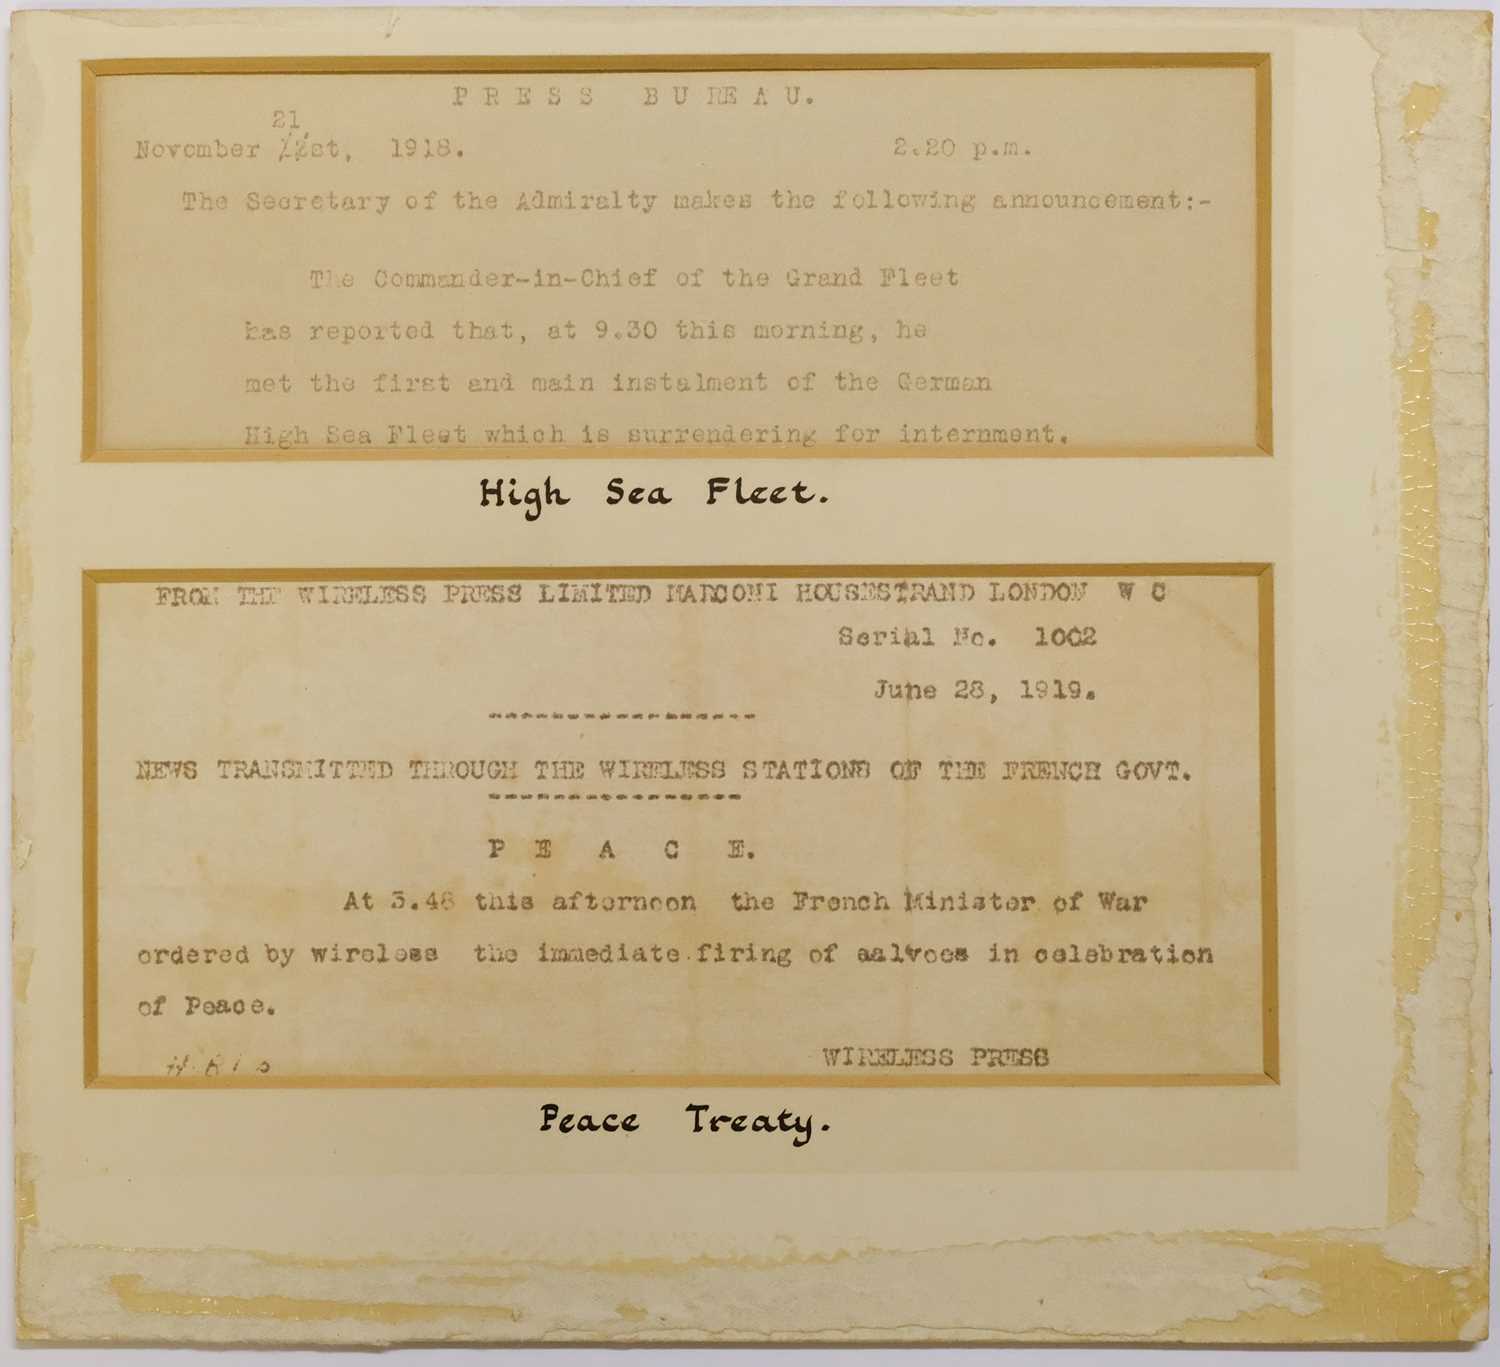 PRESS BUREAU.
21
November st, 1918. 2.20 p.m.
The Secretary of the Admiralty makes the following announcement:-
The Commander-in-Chief of the Grand Fleet
has reported that, at 9.30 this morning, he
met the first and main instalment of the German
High Sea Fleet which is surrendering for internment.
High Sea Fleet.
FROM THE WIRELESS PRESS LIMITED MARCONI HOUSESTRAND LONDON W C
Serial No. 1002
June 28, 1919.
----------------
NEWS TRANSMITTED THROUGH THE WIRELESS STATIONS OF THE FRENCH GOVT.
----------------
P E A C E.
At 3.48 this afternoon the French Minister of War
ordered by wireless the immediate firing of aalvoes in celebration
of Peace.
WIRELESS PRESS
Peace Treaty.